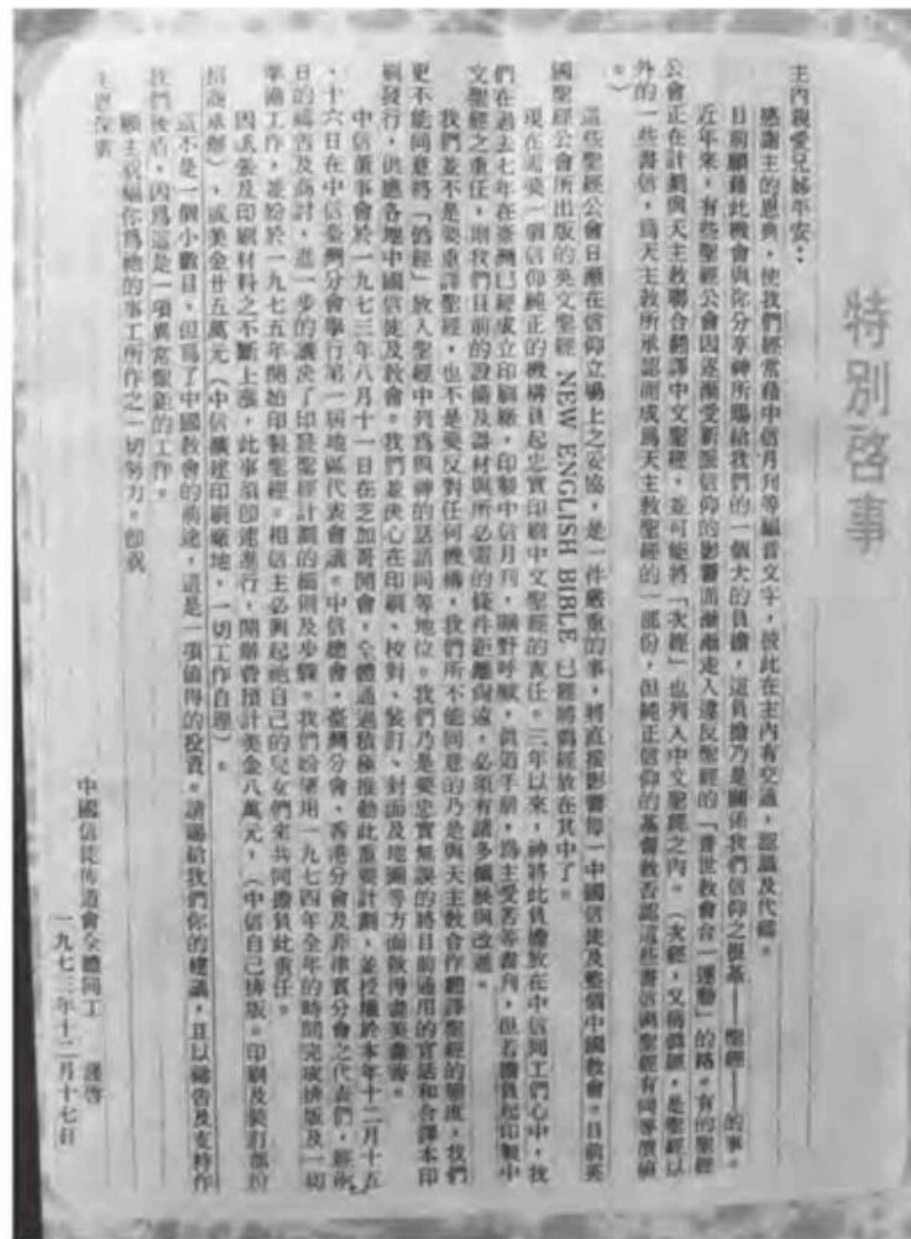 特別啓事
主內親愛兄姊平安：
感謝主的恩典，使我們經常藉中信月刊等福音文字，彼此在主內有交通，認識及代禱。
目前願藉此機會與你分享神所賜給我們的一個大的負擔，這負擔乃是關係我們信仰之根基——聖經——的事。
近年來，有些聖經公會因逐漸受新派信仰的影響而漸漸走入違反聖經的「普世教會合一運動」的路。有的聖經
公會正在計劃與天主教聯合翻譯中文聖經，並可能將「次經」也列入中文聖經之內。（次經，又稱僞經，是聖經以
外的一些書信，爲天主教所承認而成爲天主教聖經的一部份，但純正信仰的基督教否認這些書信與聖經有同等價值
。）
這些聖經公會日漸在信仰立場上之妥協，是一件嚴重的事，將直接影響每一中國信徒及整個中國教會。目前英
國聖經公會所出版的英文聖經 NEW ENGLISH BIBLE 已經將僞經放在其中了。
現在需要一個信仰純正的機構負起忠實印刷中文聖經的責任。三年以來，神將此負擔放在中信同工們心中，我
們在過去七年在臺灣已經成立印刷廠，印製中信月刊，曠野呼聲，眞道手册，爲主受苦等書刊，但若擔負起印製中
文聖經之重任，則我們目前的設備及器材與所必需的條件距離尙遠，必須有諸多擴展與改進。
我們並不是要重譯聖經，也不是要反對任何機構，我們所不能同意的乃是與天主教合作翻譯聖經的態度，我們
更不能同意將「僞經」放入聖經中列爲與神的話語同等地位。我們乃是要忠實無誤的將目前通用的官話和合譯本印
刷發行，供應各地中國信徒及教會。我們並決心在印刷、校對、裝訂、封面及地圖等方面做得盡美盡善。
中信董事會於一九七三年八月十一日在芝加哥開會，全體通過積極推動此重要計劃，並授權於本年十二月十五
、十六日在中信臺灣分會舉行第一屆地區代表會議。中信總會，臺灣分會、香港分會及菲律賓分會之代表們，經兩
日的禱告及商討，進一步的議決了印發聖經計劃的細則及步驟。我們盼望用一九七四年全年的時間完成排版及一切
準備工作，並盼於一九七五年開始印製聖經。相信主必興起祂自己的兒女們來共同擔負此重任。
因紙張及印刷材料之不斷上漲，此事須卽速進行，開辦費預計美金八萬元，（中信自己排版。印刷及裝訂部份
招商承辦），或美金廿五萬元（中信擴建印刷廠地，一切工作自理）。
這不是一個小數目，但爲了中國教會的前途，這是一項値得的投資。請賜給我們你的建議，且以禱告及支持作
我們後盾，因爲這是一項異常艱鉅的工作。
願主祝福你爲祂的事工所作之一切努力。卽祝
主恩深書
中國信徒佈道會全體同工　謹啓
一九七三年十二月十七日